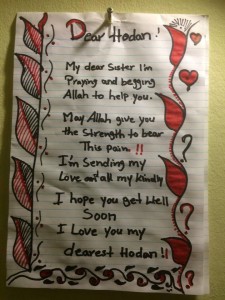 Dear Hodan!
My dear Sister I'm
Praying and begging
Allah to help you.
May Allah give you
the Strength to bear
This pain !!
I'm Sending my
Love and all my kindly
I hope you Get Well
Soon
I Love you my
dearest Hodan !!